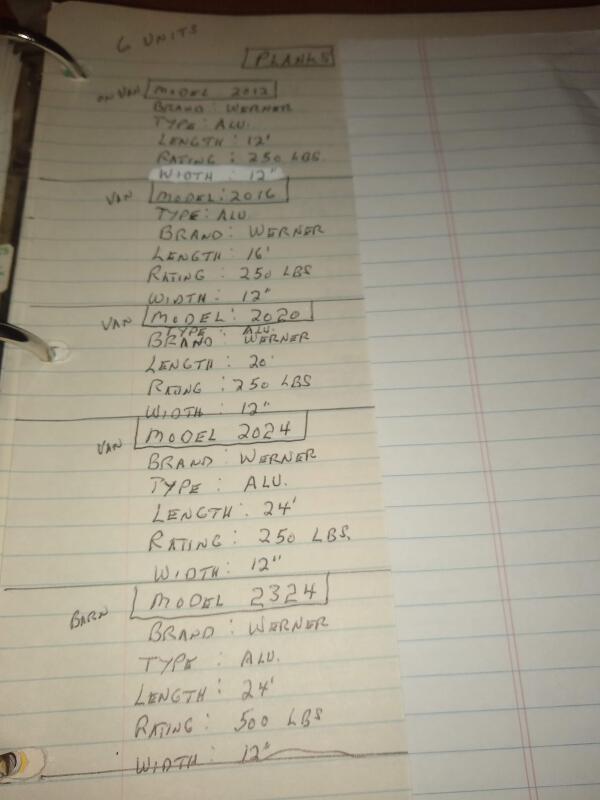 6 UNITS
PLANKS
ON VAN MODEL 2012
BRAND: WERNER
TYPE: ALU.
LENGTH: 12'
RATING: 250 LBS.
WIDTH: 12"
VAN MODEL: 2016
TYPE: ALU.
BRAND: WERNER
LENGTH: 16'
RATING: 250 LBS
WIDTH: 12"
VAN MODEL: 2020
TYPE: ALU.
BRAND: WERNER
LENGTH: 20'
RATING: 250 LBS
WIDTH: 12"
VAN MODEL 2024
BRAND: WERNER
TYPE: ALU.
LENGTH: 24'
RATING: 250 LBS.
WIDTH: 12"
BARN MODEL 2324
BRAND: WERNER
TYPE: ALU.
LENGTH: 24'
RATING: 500 LBS
WIDTH: 12"